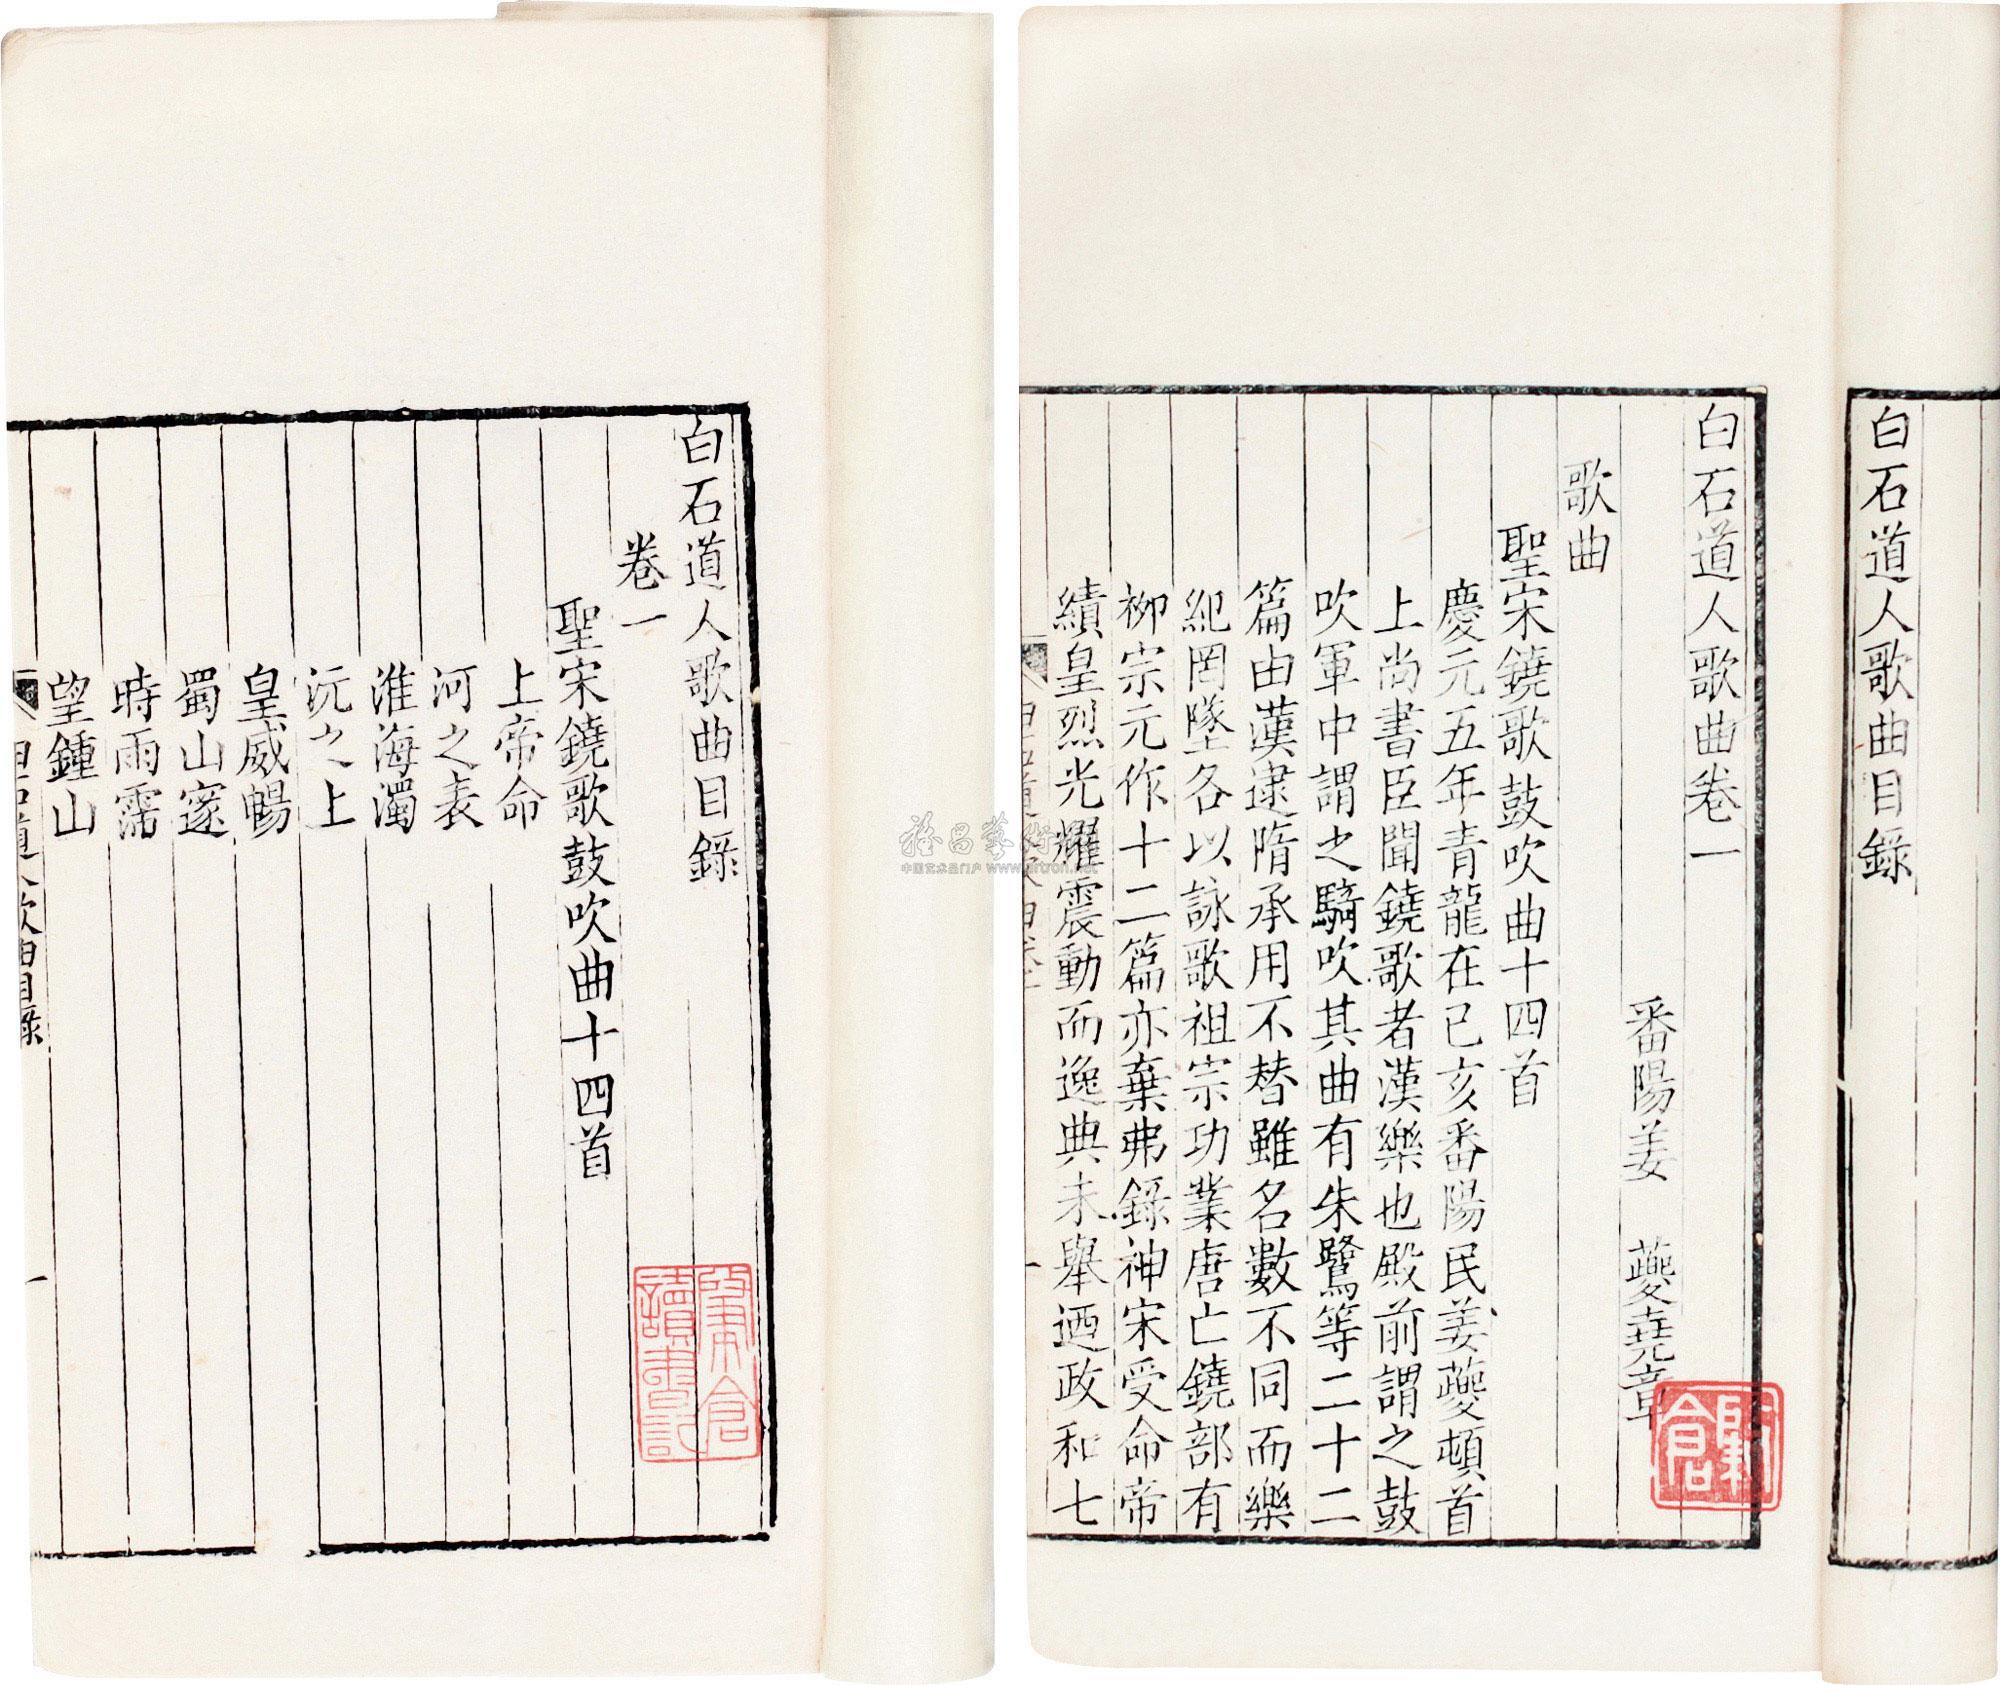 白石道人歌曲目錄
白石道人歌曲卷一
番陽姜 夔堯章
歌曲
聖宋鐃歌鼓吹曲十四首
慶元五年青龍在己亥番陽民姜夔頓首
上尚書臣聞鐃歌者漢樂也殿前謂之鼓
吹軍中謂之騎吹其曲有朱鷺等二十二
篇由漢逮隋承用不替雖名數不同而樂
紀罔墜各以詠歌祖宗功業唐亡鐃部有
柳宗元作十二篇亦棄弗錄神宋受命帝
績皇烈光耀震動而逸典未舉迺政和七
白石道人歌曲目錄
卷一
聖宋鐃歌鼓吹曲十四首
上帝命
河之表
淮海濁
沅之上
皇威暢
蜀山邃
時雨霈
望鍾山
一
讀書記
中国艺术品门户 www.artron.net